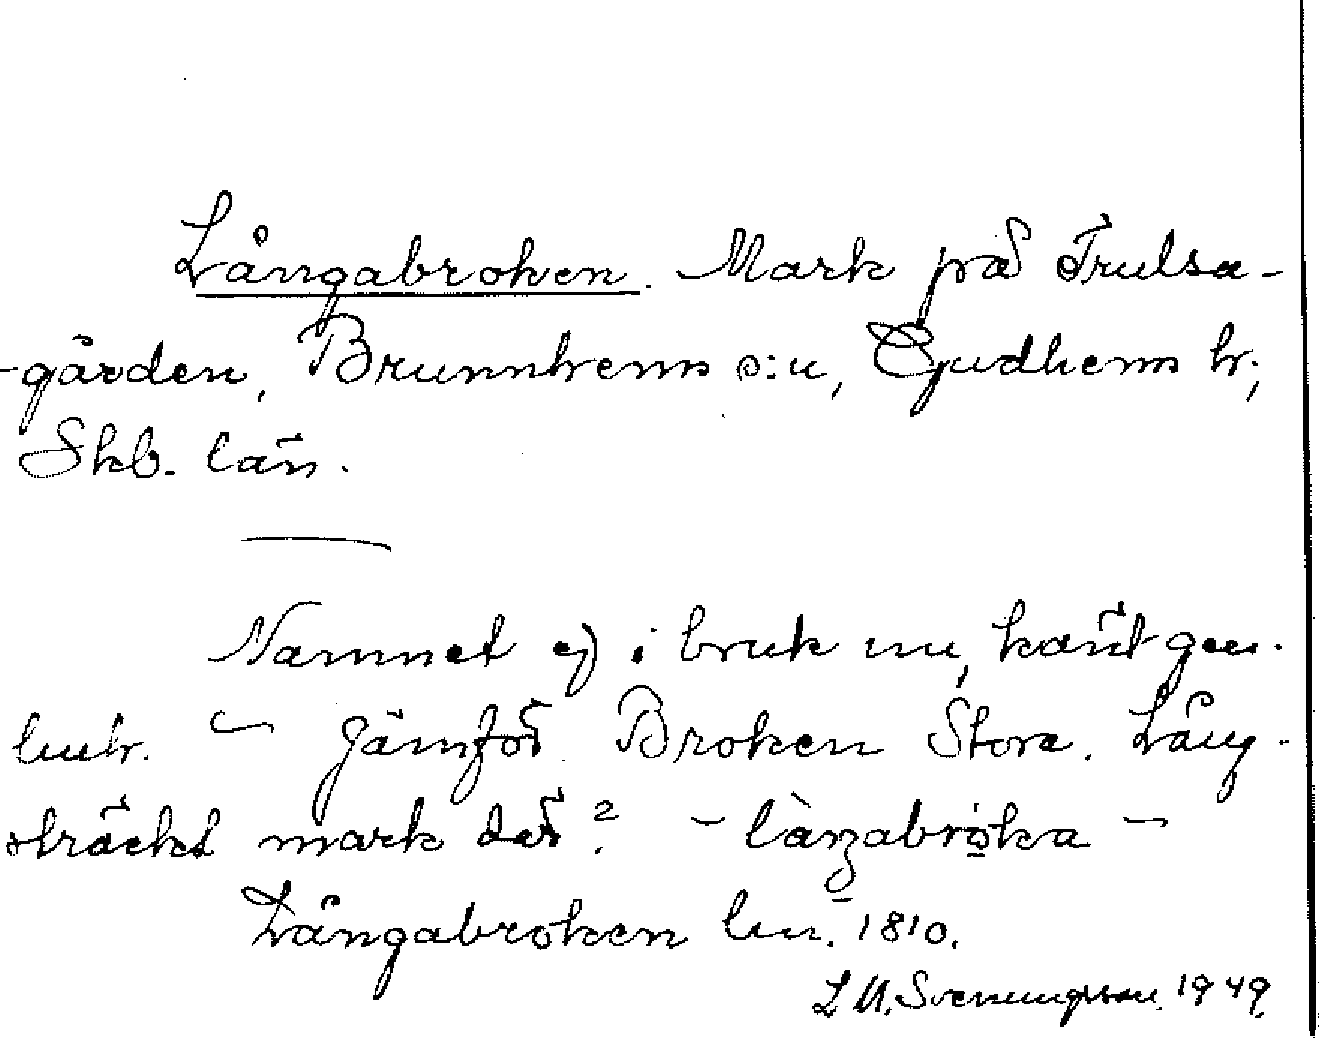 Långabroken. Mark på Trulsa-
-gården, Brunnhems s:n, Gudhems hr,
Skb. län.
Namnet ej i bruk nu, känt gen.
lmhr. — Jämför Broken Stora. Lång-
sträckt mark där? —
Långabroken lm. 1810.
Svenungsson 1949.